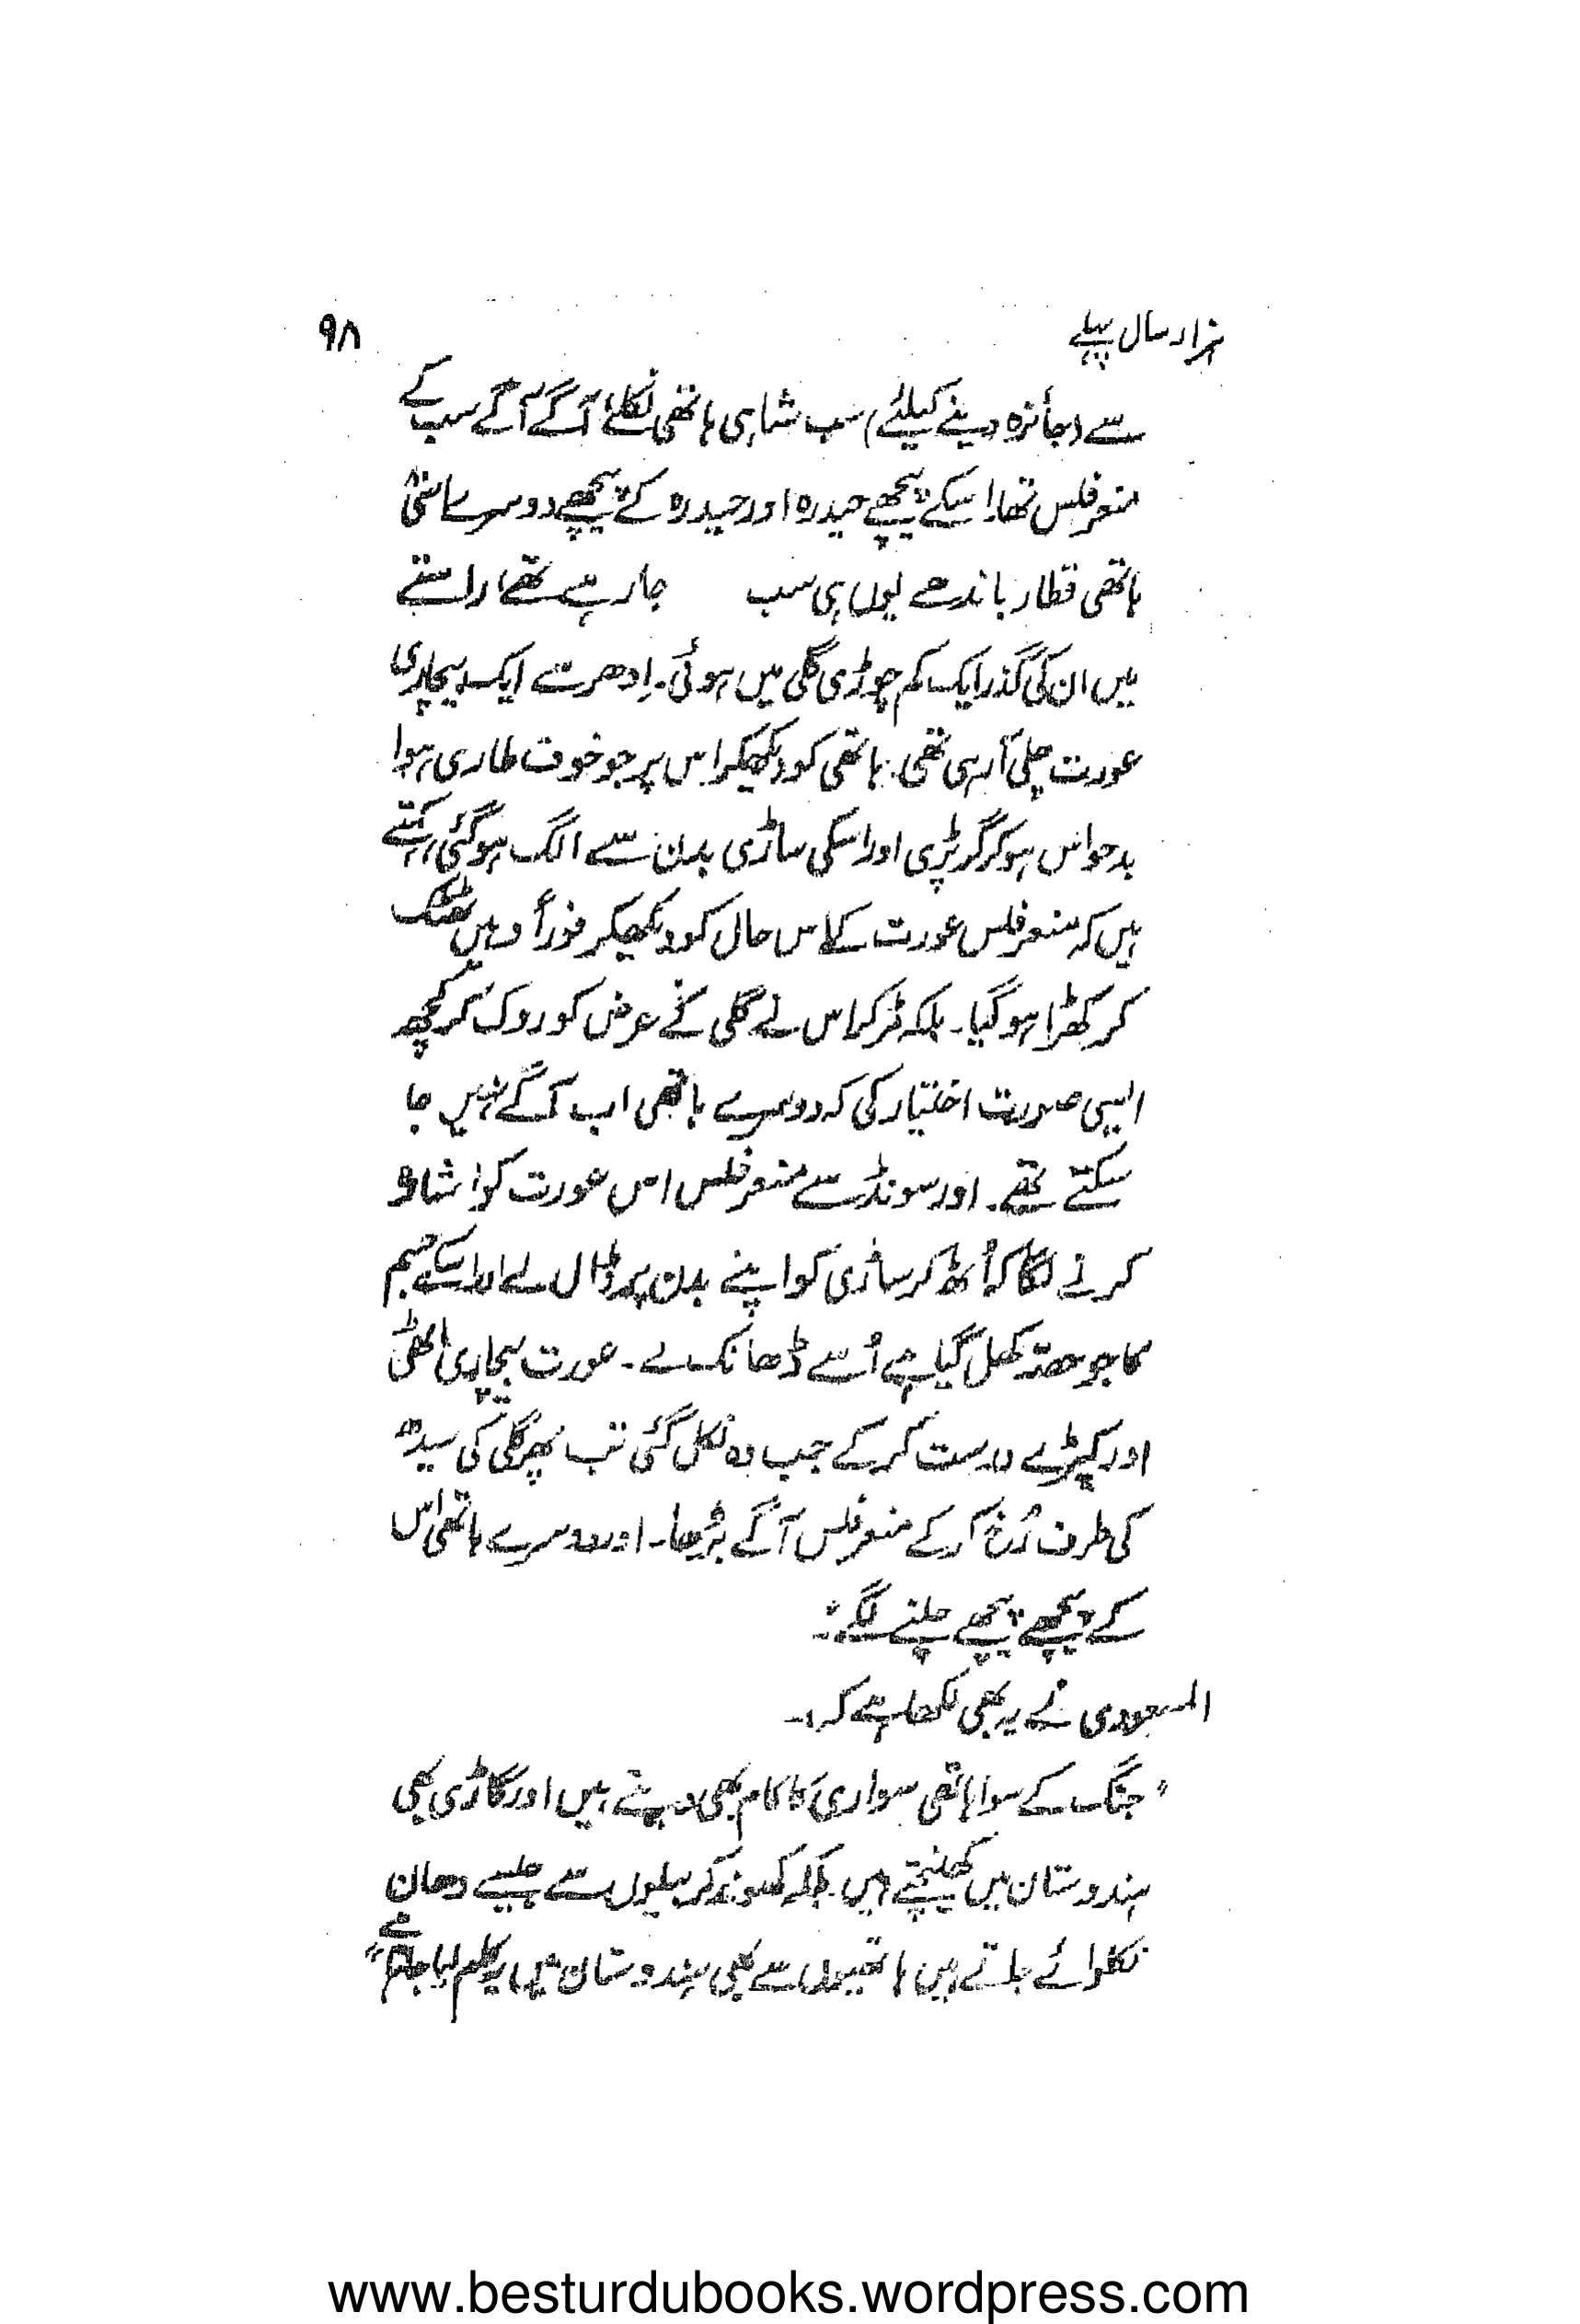 ہزار سال پہلے
۹۸
سے (جائزہ دینے کیلئے) سب شاہی ہاتھی نکلے، آگے آگے سب کے
منعرفلس تھا، اسکے پیچھے حیدرہ اور حیدرہ کے پیچھے دوسرے اسّی
ہاتھی قطار باندھے یوں ہی سب جا رہے تھے، راستے
میں ان کی گذر ایک کم چوڑی گلی میں ہوئی۔ اِدھر سے ایک بیچاری
عورت چلی آرہی تھی، ہاتھی کو دیکھکر اس پر جو خوف طاری ہوا
بدحواس ہوکر گر پڑی اور اسکی ساڑی بدن سے الگ ہوگئی، کہتے
ہیں کہ منعرفلس عورت کے اس حال کو دیکھکر فوراً وہیں ٹھٹک
کر کھڑا ہو گیا۔ بلکہ مڑ کر اس نے گلی کے عرض کو روک کر کچھ
ایسی صورت اختیار کی کہ دوسرے ہاتھی اب آگے نہیں جا
سکتے تھے۔ اور سونڈ سے منعرفلس اس عورت کو اشارہ
کرنے لگا کہ اُٹھ کر ساڑی کو اپنے بدن پر ڈال لے اور اسکے جسم
کا جو حصّہ کھل گیا ہے اُسے ڈھانک لے۔ عورت بیچاری اٹھی
اور کپڑے درست کرکے جب وہ نکل گئی تب پھر گلی کی سیدھ
کی طرف رُخ کر کے منعرفلس آگے بڑھا۔ اور دوسرے ہاتھی اس
کے پیچھے پیچھے چلنے لگے :۔
المسعودی نے یہ بھی لکھا ہے کہ :۔
"جنگ کے سوا ہاتھی سواری کا کام بھی دیتے ہیں اور گاڑی بھی
ہندوستان میں کھینچتے ہیں۔ بلکہ کھوند کر بیلوں سے جیسے دھان
نکلوائے جاتے ہیں ہاتھیوں سے بھی ہندوستان میں یہ کام لیا جاتا ہے"
www.besturdubooks.wordpress.com